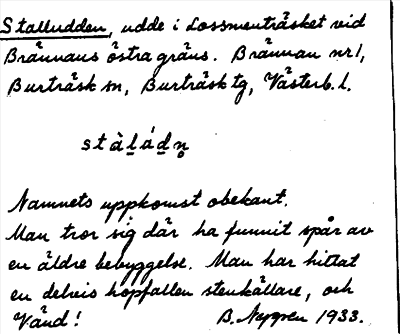 Stalludden, udde i Lossmenträsket vid
Brännans östra gräns. Brännan nr 1,
Burträsk sn, Burträsk tg, Västerb. l.
stàḷáḍṇ̥
Namnets uppkomst obekant.
Man tror sig där ha funnit spår av
en äldre bebyggelse. Man har hittat
en delvis hopfallen stenkällare, och
Vänd! B. Nygren 1933.